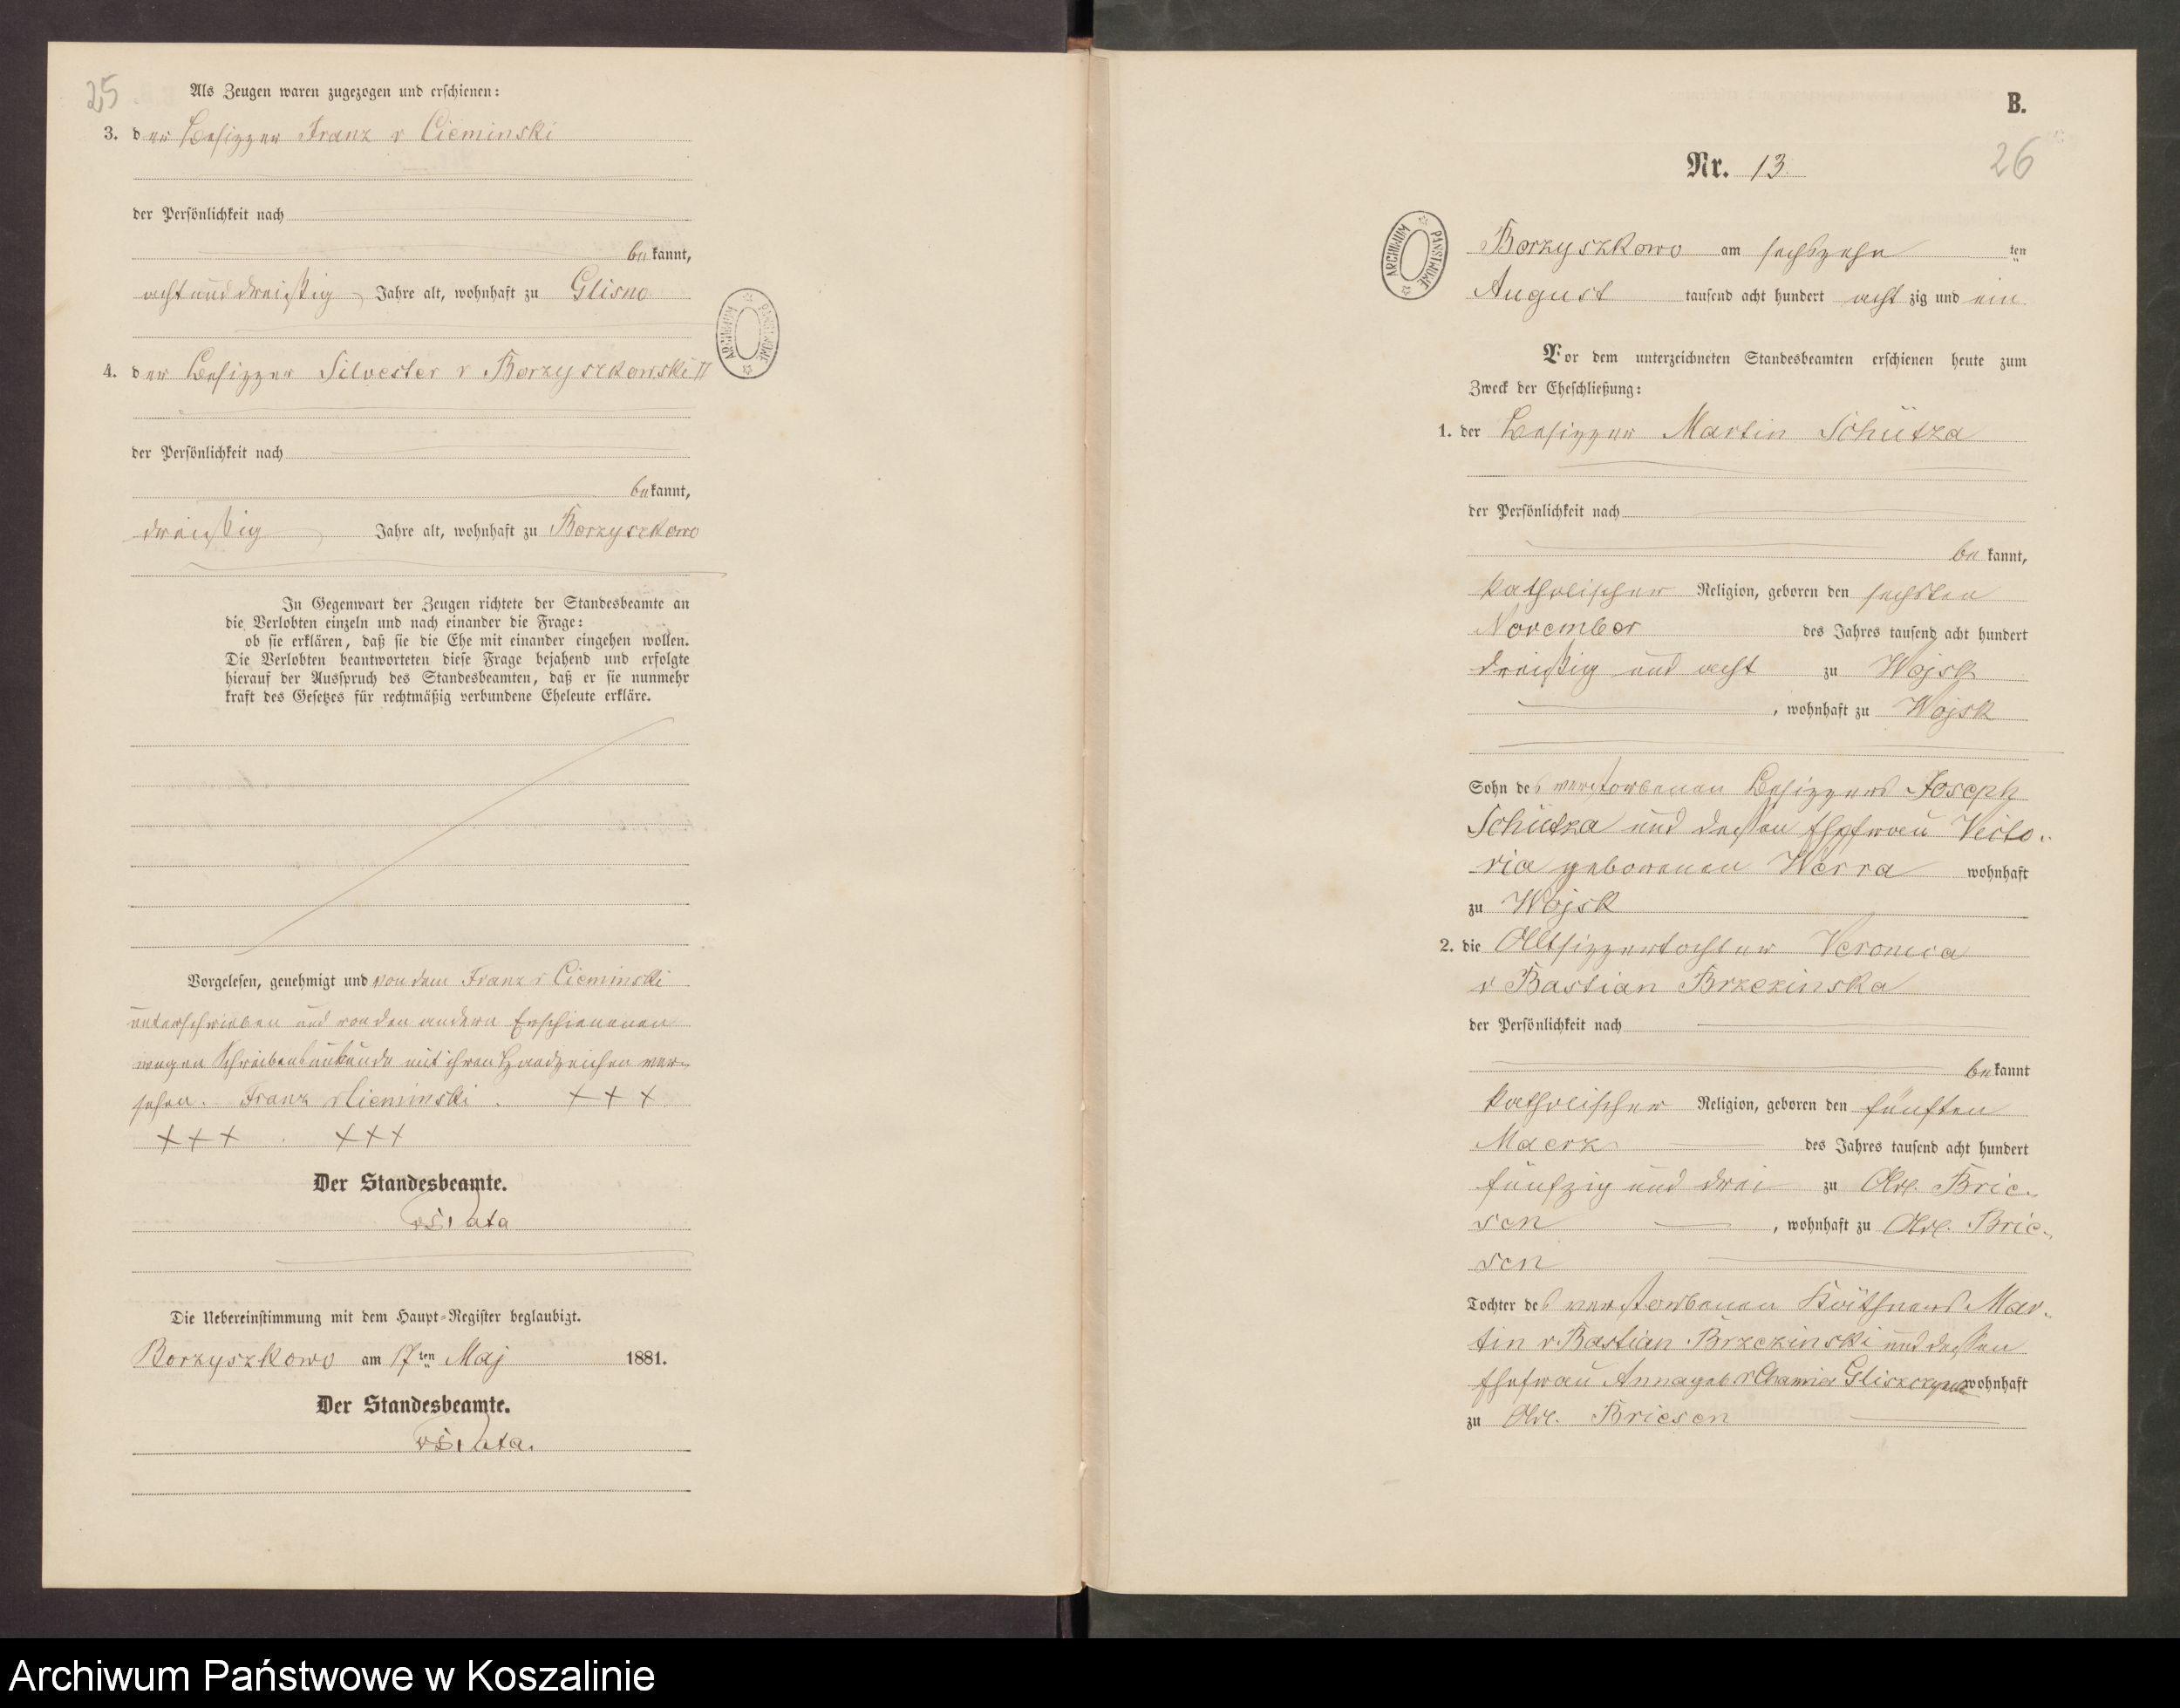 25
Als Zeugen waren zugezogen und erschienen:
3. der Besitzer Franz v Cieminski
der Persönlichkeit nach
bekannt,
acht und dreißig Jahre alt, wohnhaft zu Glisno
4. der Besitzer Silvester v Borzyszkowski II
der Persönlichkeit nach
bekannt,
dreißig Jahre alt, wohnhaft zu Borzyszkowo
In Gegenwart der Zeugen richtete der Standesbeamte an
die Verlobten einzeln und nach einander die Frage:
ob sie erklären, daß sie die Ehe mit einander eingehen wollen.
Die Verlobten beantworteten diese Frage bejahend und erfolgte
hierauf der Ausspruch des Standesbeamten, daß er sie nunmehr
kraft des Gesetzes für rechtmäßig verbundene Eheleute erkläre.
Vorgelesen, genehmigt und von dem Franz v Cieminski
unterschrieben und von den andern Erschienenen
wegen Schreibensunkunde mit ihren Handzeichen ver-
sehen. Franz v Cieminski. + + +
+ + + . + + +
Der Standesbeamte.
Die Uebereinstimmung mit dem Haupt-Register beglaubigt.
Borzyszkowo am 17ten Maj 1881.
Der Standesbeamte.
B.
26
Nr. 13.
ARCHIWUM PAŃSTWOWE
Borzyszkowo am sechszehn ten
August tausend acht hundert achtzig und ein
Vor dem unterzeichneten Standesbeamten erschienen heute zum
Zweck der Eheschließung:
1. der Besitzer Martin Schütza
der Persönlichkeit nach
bekannt,
katholischer Religion, geboren den sechsten
November des Jahres tausend acht hundert
dreißig und acht zu Wojsk
, wohnhaft zu Wojsk
Sohn des verstorbenen Besitzers Joseph
Schütza und dessen Ehefrau Victo-
ria geborenen Werra wohnhaft
zu Wojsk
2. die Altsitzertochter Veronica
v Bastian Brzezinska
der Persönlichkeit nach
bekannt
katholischer Religion, geboren den fünften
Maerz des Jahres tausend acht hundert
fünfzig und drei zu Adl. Brie-
sen , wohnhaft zu Adl. Brie-
sen
Tochter des verstorbenen Käthners Mar-
tin v Bastian Brzezinski und dessen
Ehefrau Anna geb v Chamier wohnhaft
zu Adl. Briesen
ARCHIWUM PAŃSTWOWE
Archiwum Państwowe w Koszalinie